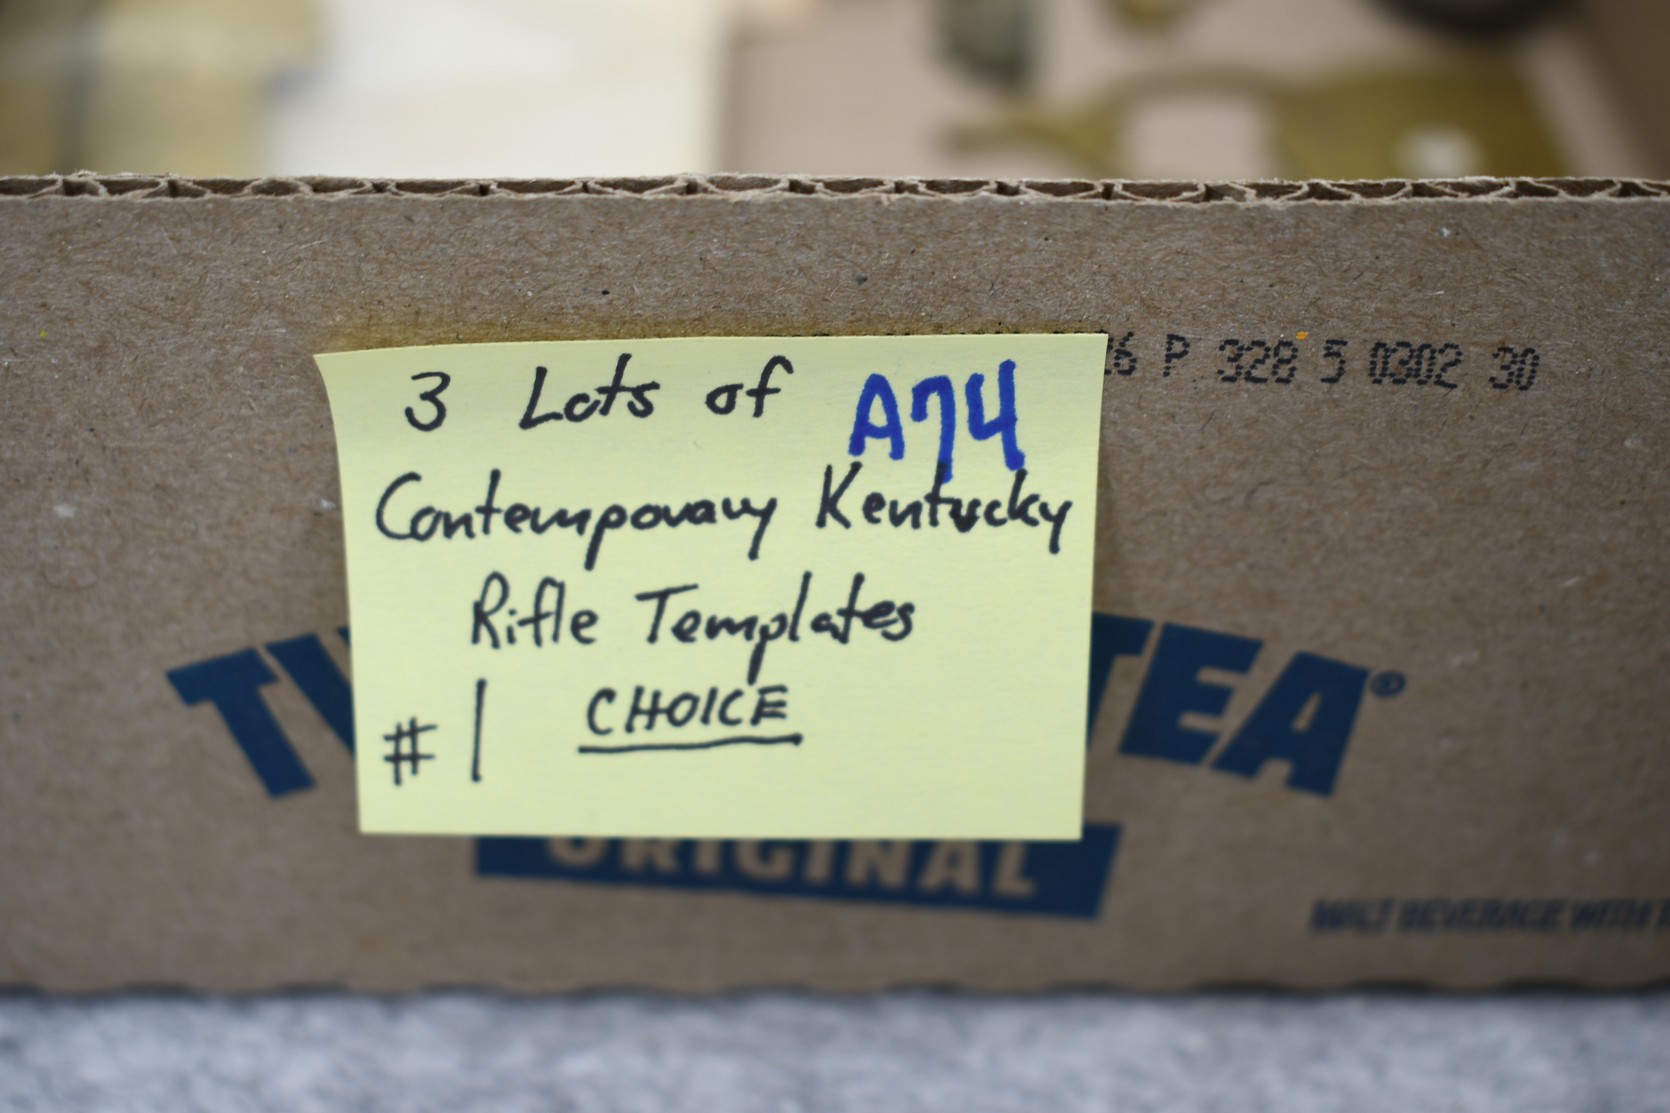 3 Lots of A74
Contemporary Kentucky
Rifle Templates
#1 CHOICE
6 P 328 5 0302 30
TEA®
ORIGINAL
MALT BEVERAGE WITH